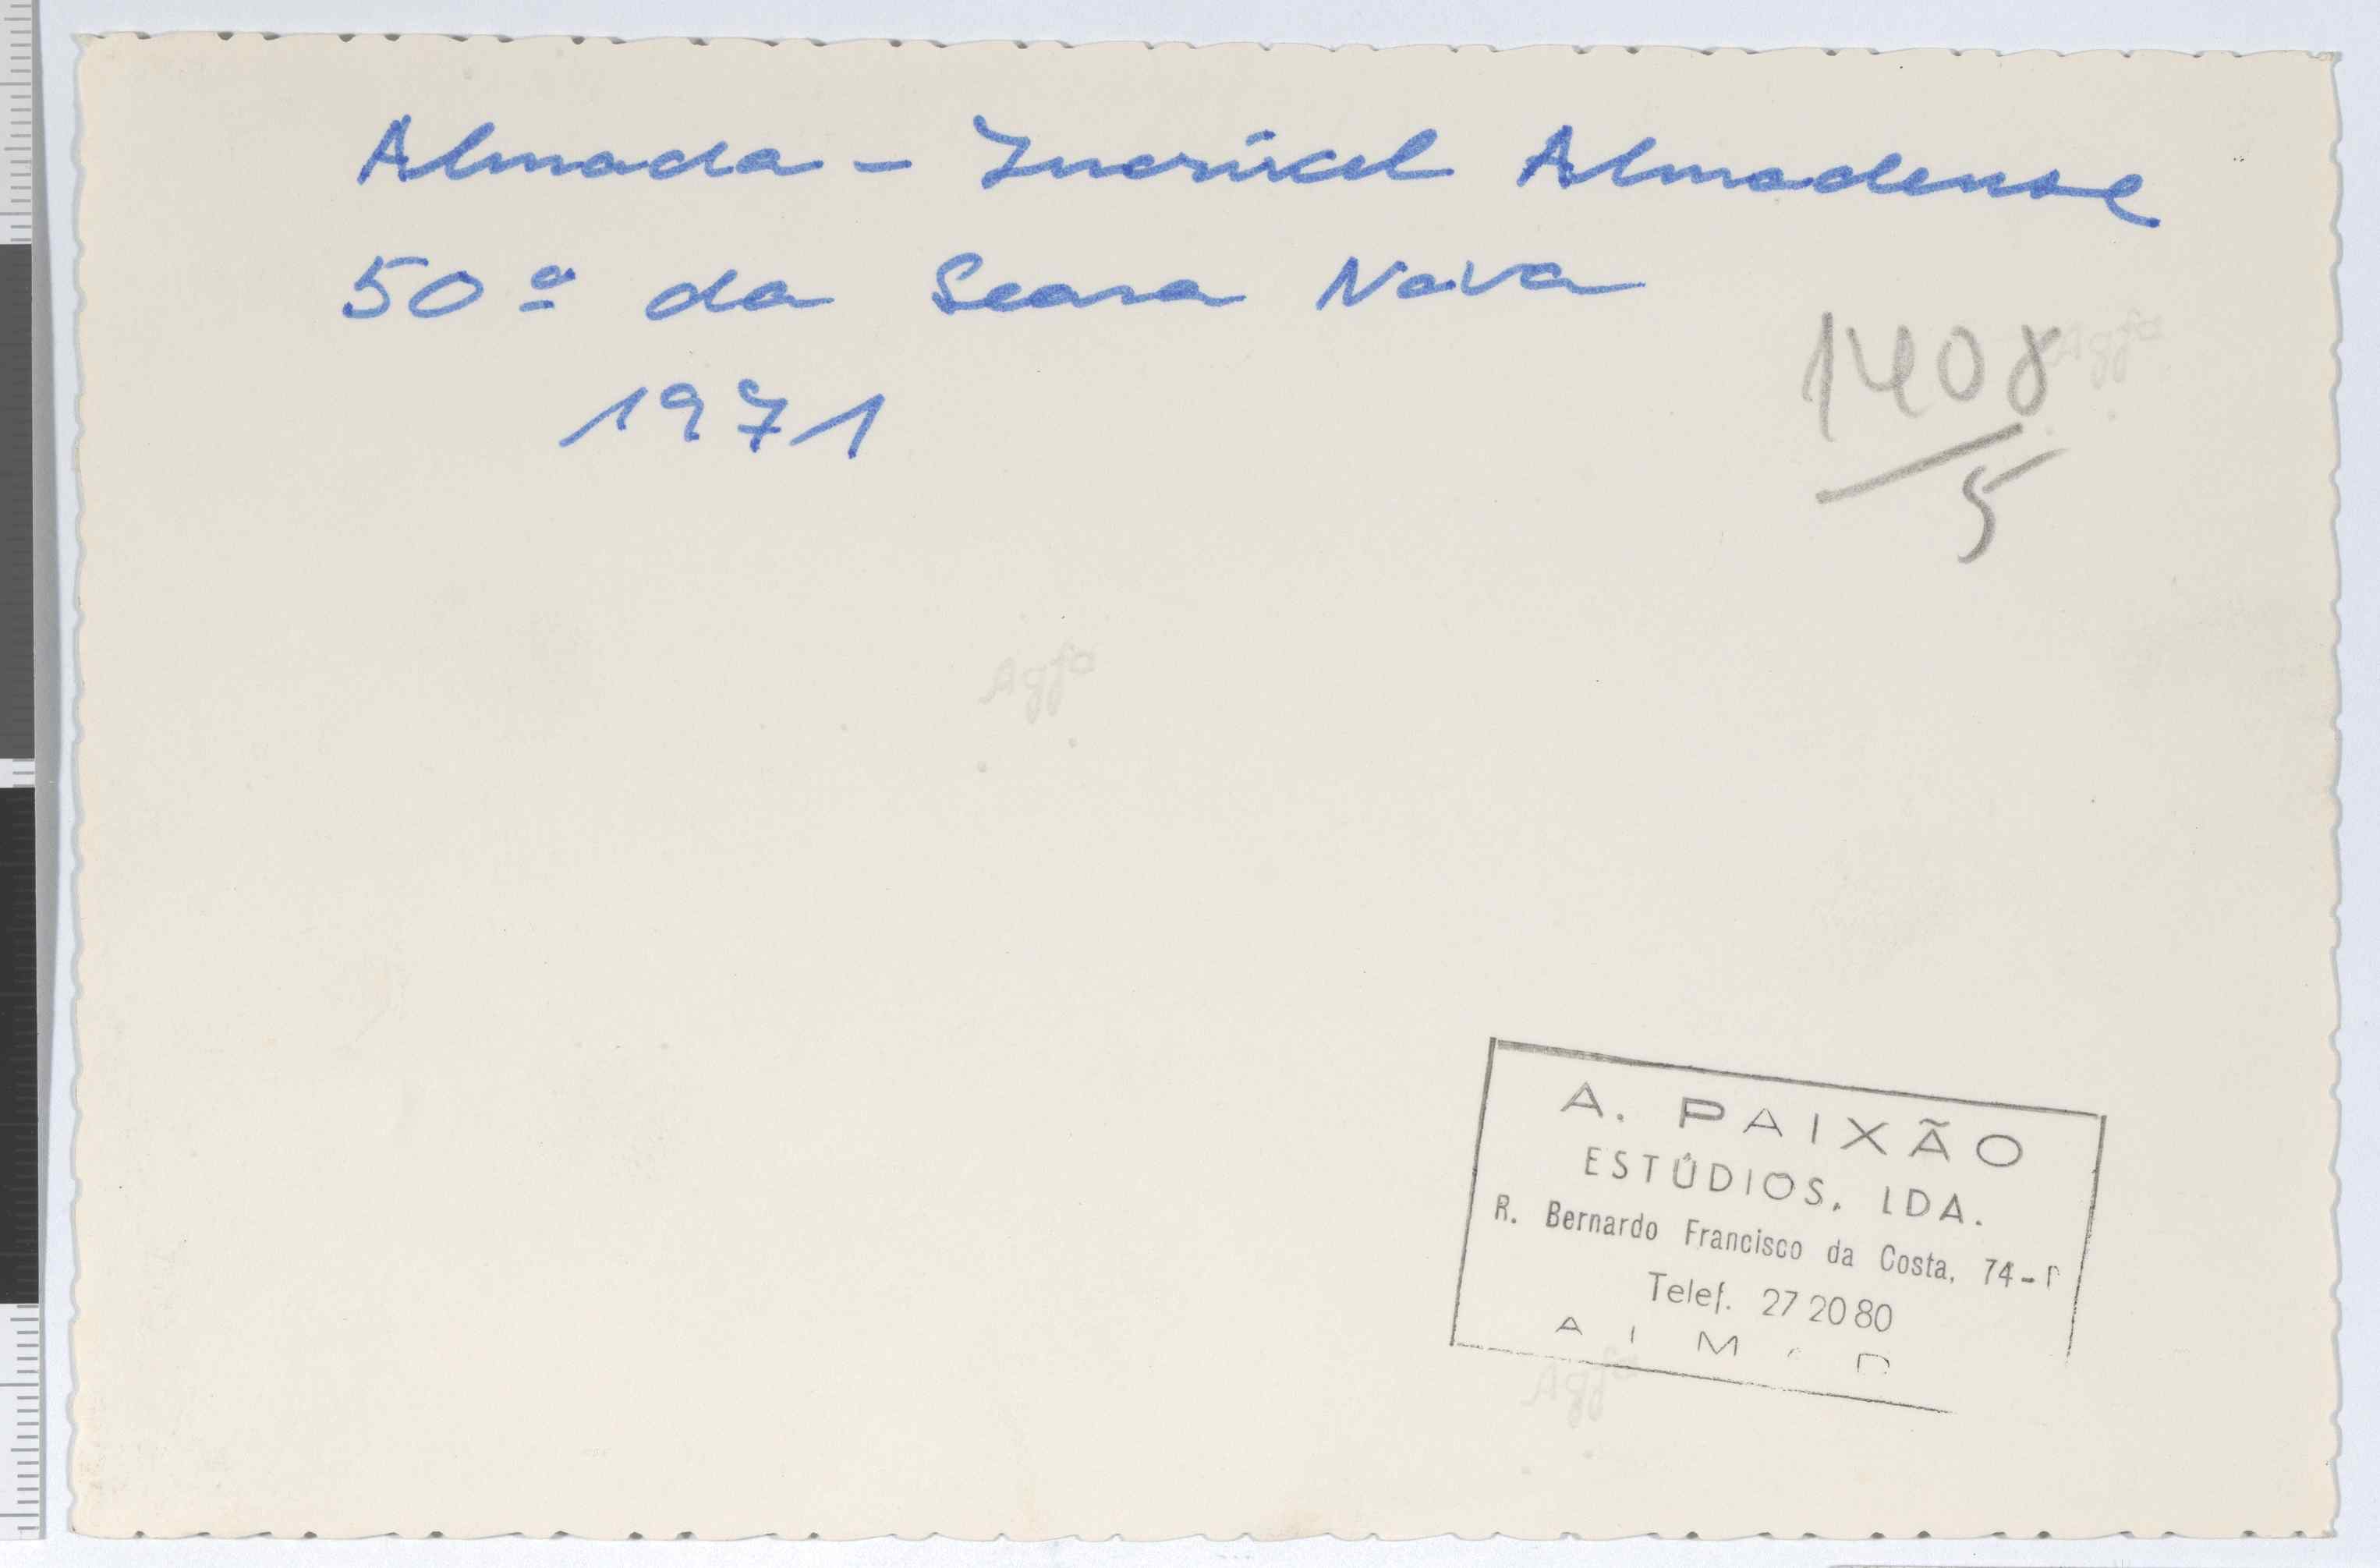 Almada - Incrível Almadense
50º da Seara Nova
1971
1408
5
Agfa
Agfa
A. PAIXÃO
ESTÚDIOS, LDA.
R. Bernardo Francisco da Costa, 74-
Telef. 27 20 80
Agfa